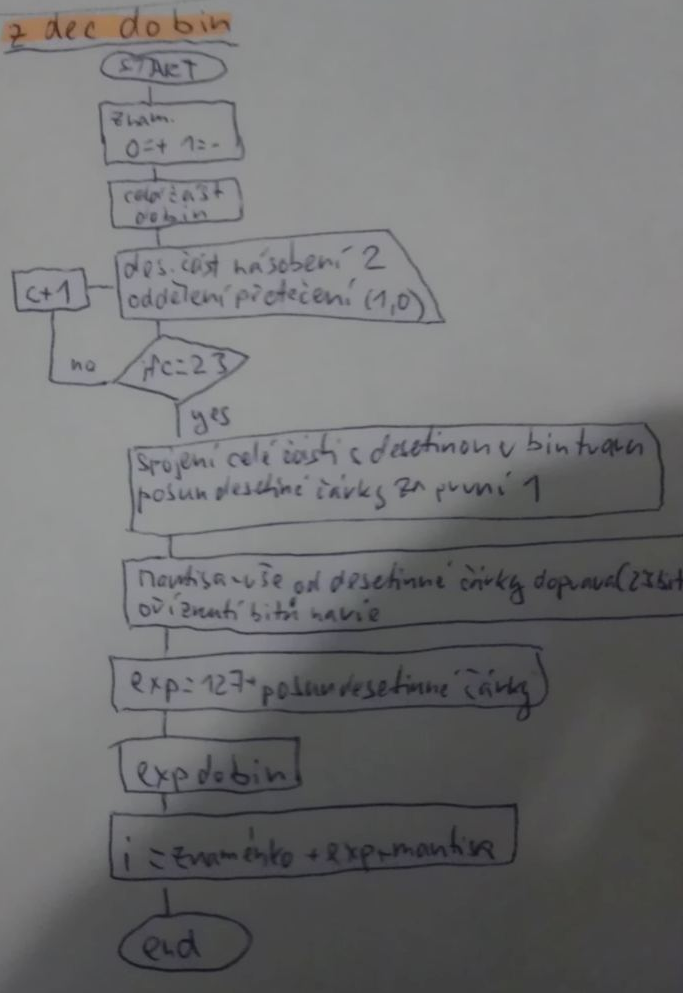 z dec do bin
START
znam.
0=+ 1=-
celá část
do bin
des. část násobení 2
oddělení přetečení (1,0)
c+1
no
if c=23
yes
spojení celé části s desetinou v bin tvaru
posun desetiné čárky za první 1
mantisa-vše od desetinné čárky doprava (23bit
oříznutí bitů navíc
exp=127+posun desetinné čárky
exp do bin
i = znaménko + exp+mantisa
end